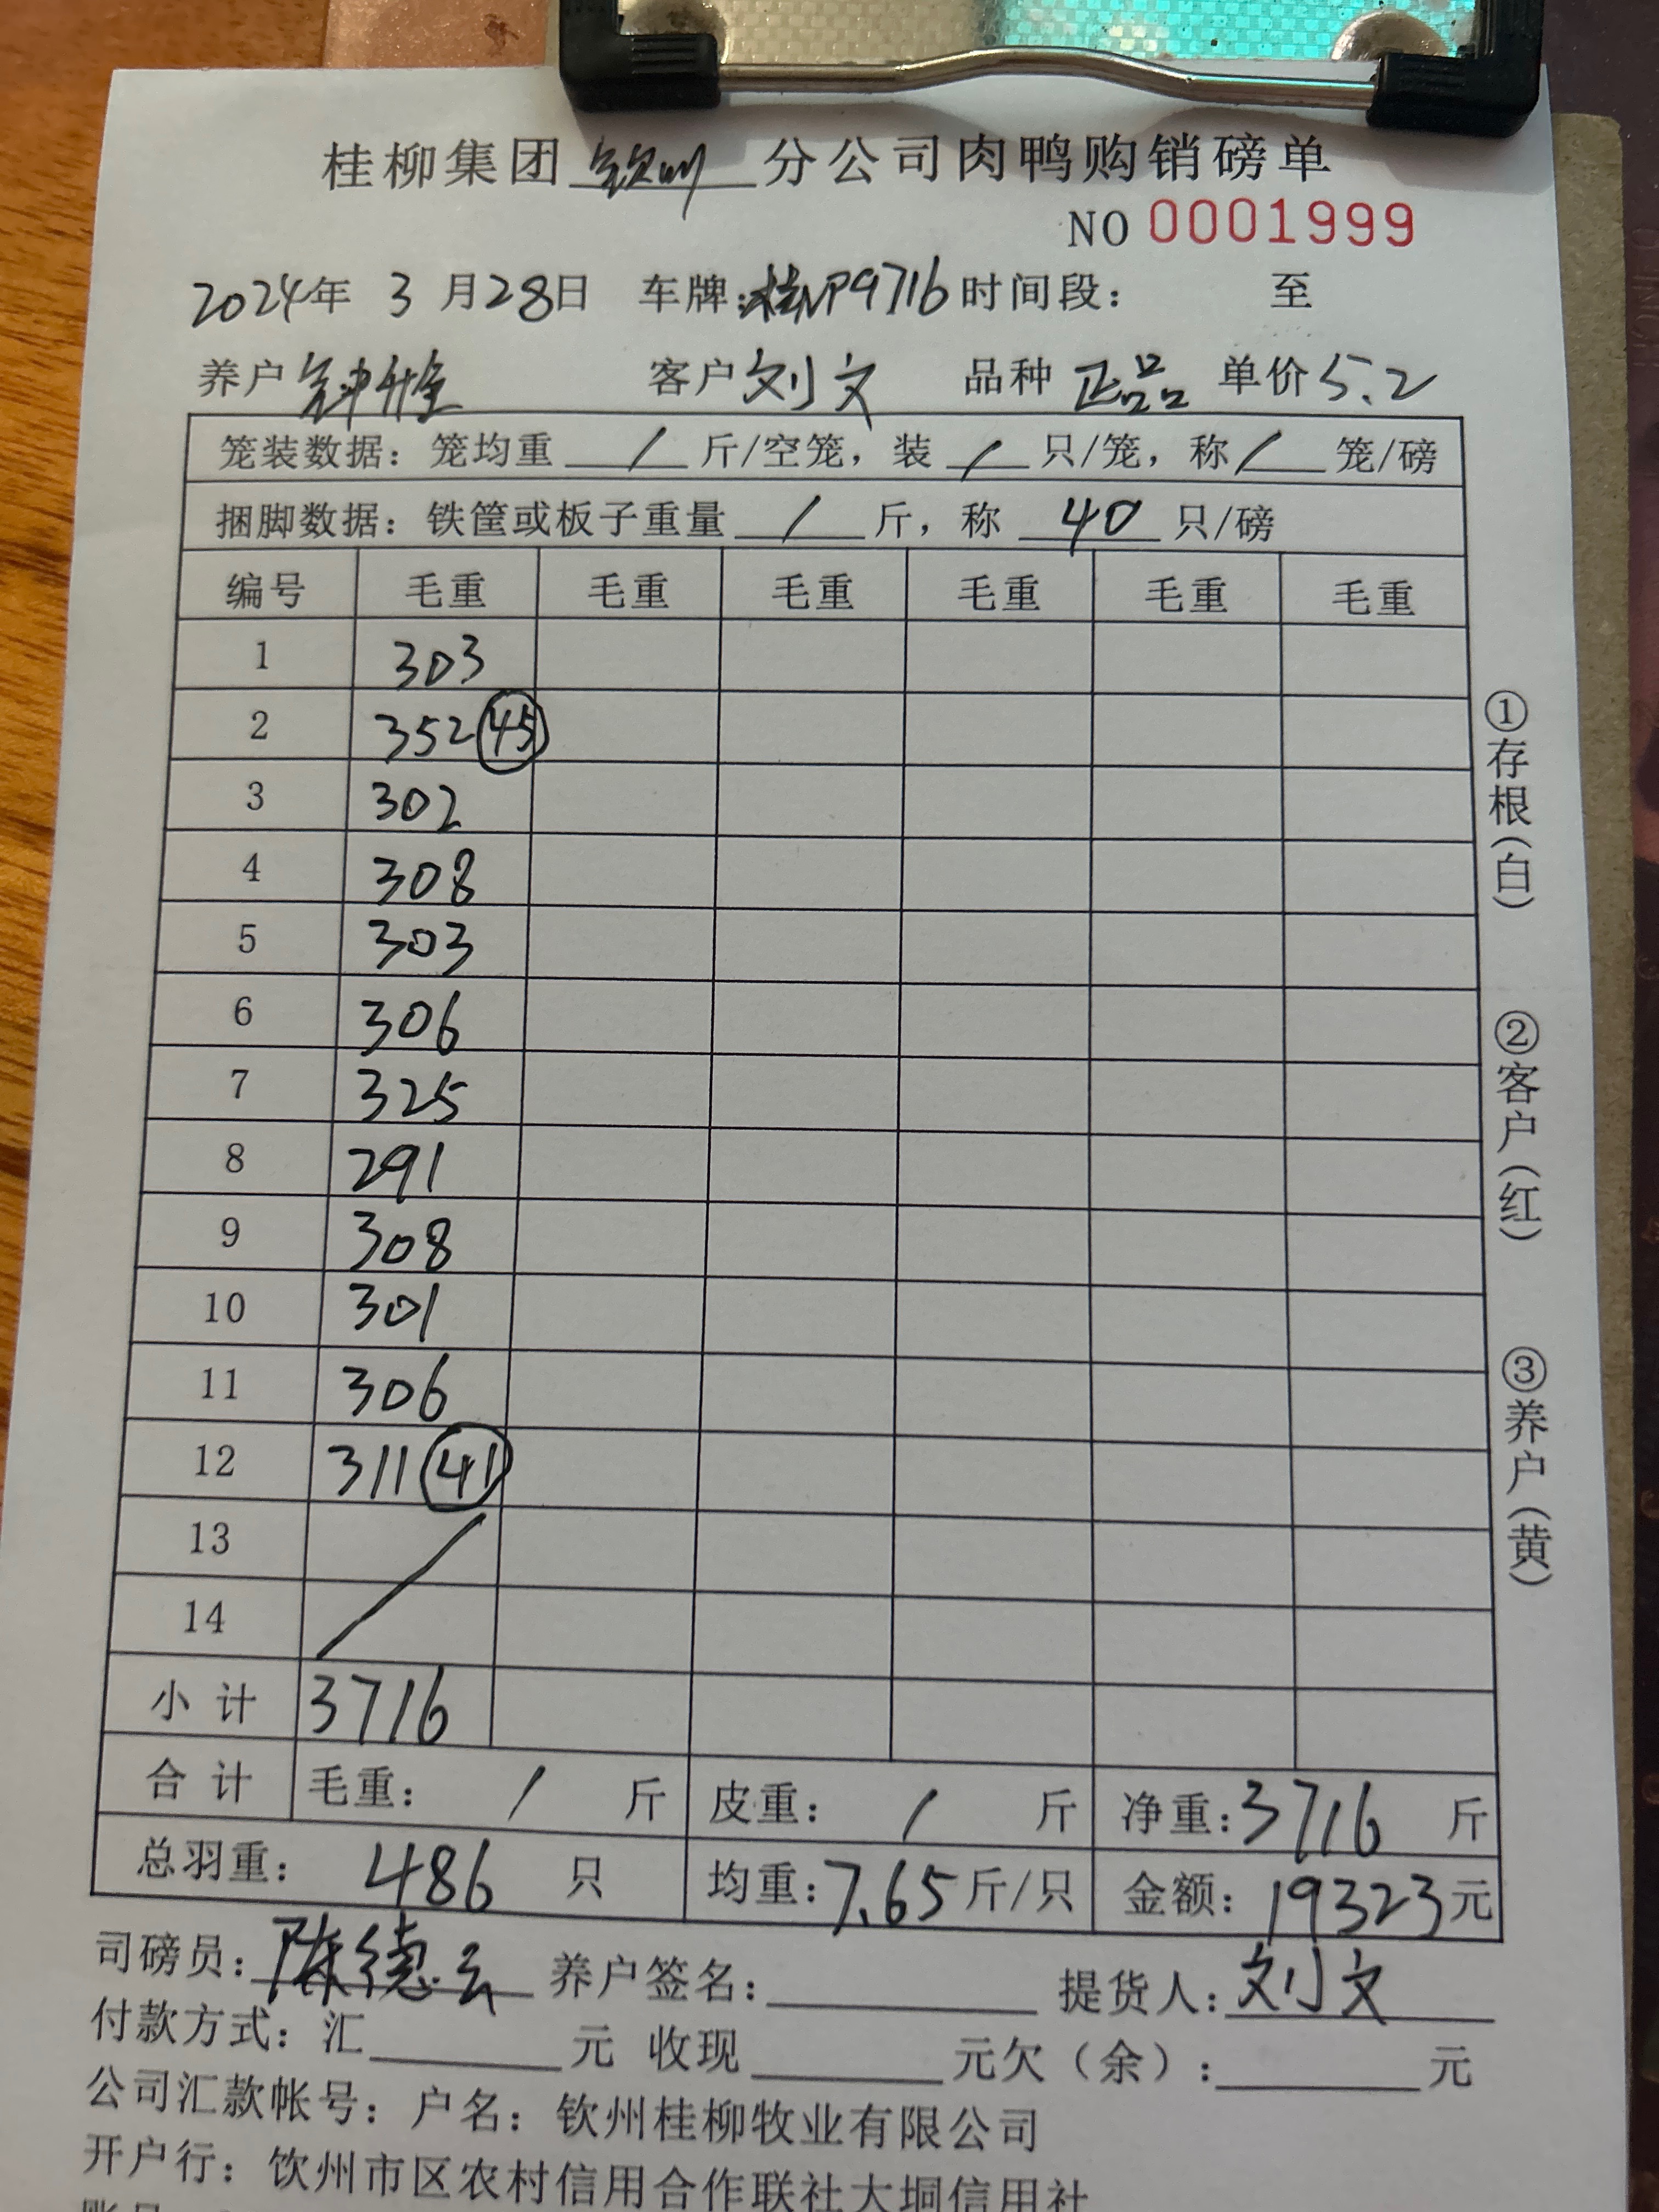 桂柳集团 钦州 分公司肉鸭购销磅单
NO 0001999
2024年 3 月28日 车牌:桂NP9716 时间段: 至
养户 客户 刘文 品种 正品 单价 5.2
笼装数据: 笼均重 / 斤/空笼, 装 / 只/笼, 称 / 笼/磅
捆脚数据: 铁筐或板子重量 / 斤, 称 40 只/磅
编号 毛重 毛重 毛重 毛重 毛重 毛重
1 303
2 352 45
3 302
4 308
5 303
6 306
7 325
8 291
9 308
10 301
11 306
12 311 41
13
14
小 计 3716
合 计 毛重: / 斤 皮重: / 斤 净重:3716 斤
总羽重: 486 只 均重:7.65 斤/只 金额: 19323元
司磅员: 陈德云 养户签名: 提货人: 刘文
付款方式: 汇 元 收现 元欠(余): 元
公司汇款帐号: 户名: 钦州桂柳牧业有限公司
开户行: 钦州市区农村信用合作联社大垌信用社
①存根(白)
②客户(红)
③养户(黄)